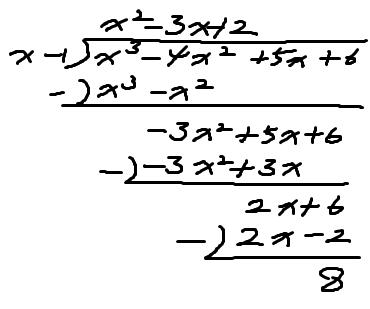 x² - 3x + 2
x - 1 ) x³ - 4x² + 5x + 6
- ) x³ - x²
- 3x² + 5x + 6
- ) - 3x² + 3x
2x + 6
- ) 2x - 2
8